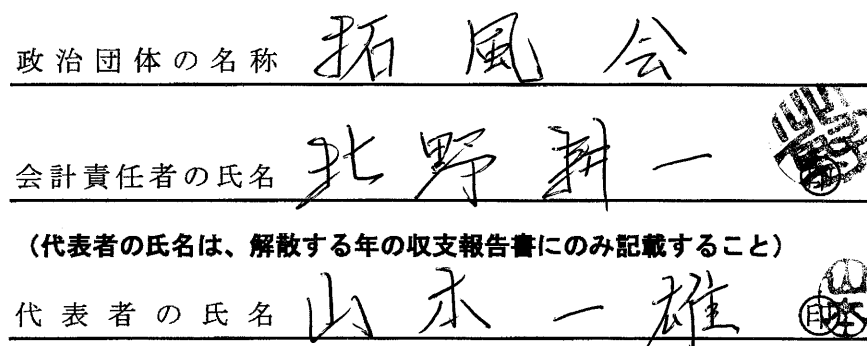 政治団体の名称 拓風会
会計責任者の氏名 北野耕一 印
(代表者の氏名は、解散する年の収支報告書にのみ記載すること)
代表者の氏名 山本一雄 印